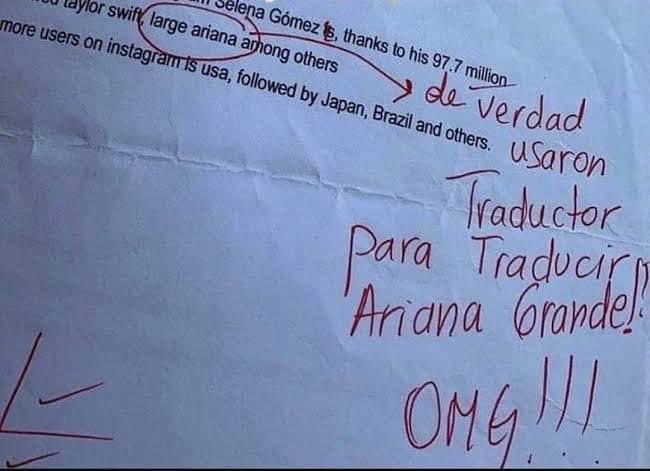 taylor swift, large ariana among others
Selena Gómez is, thanks to his 97.7 million
more users on instagram is usa, followed by Japan, Brazil and others.
de verdad
usaron
Traductor
para Traducir
Ariana Grande!!
OMG!!!